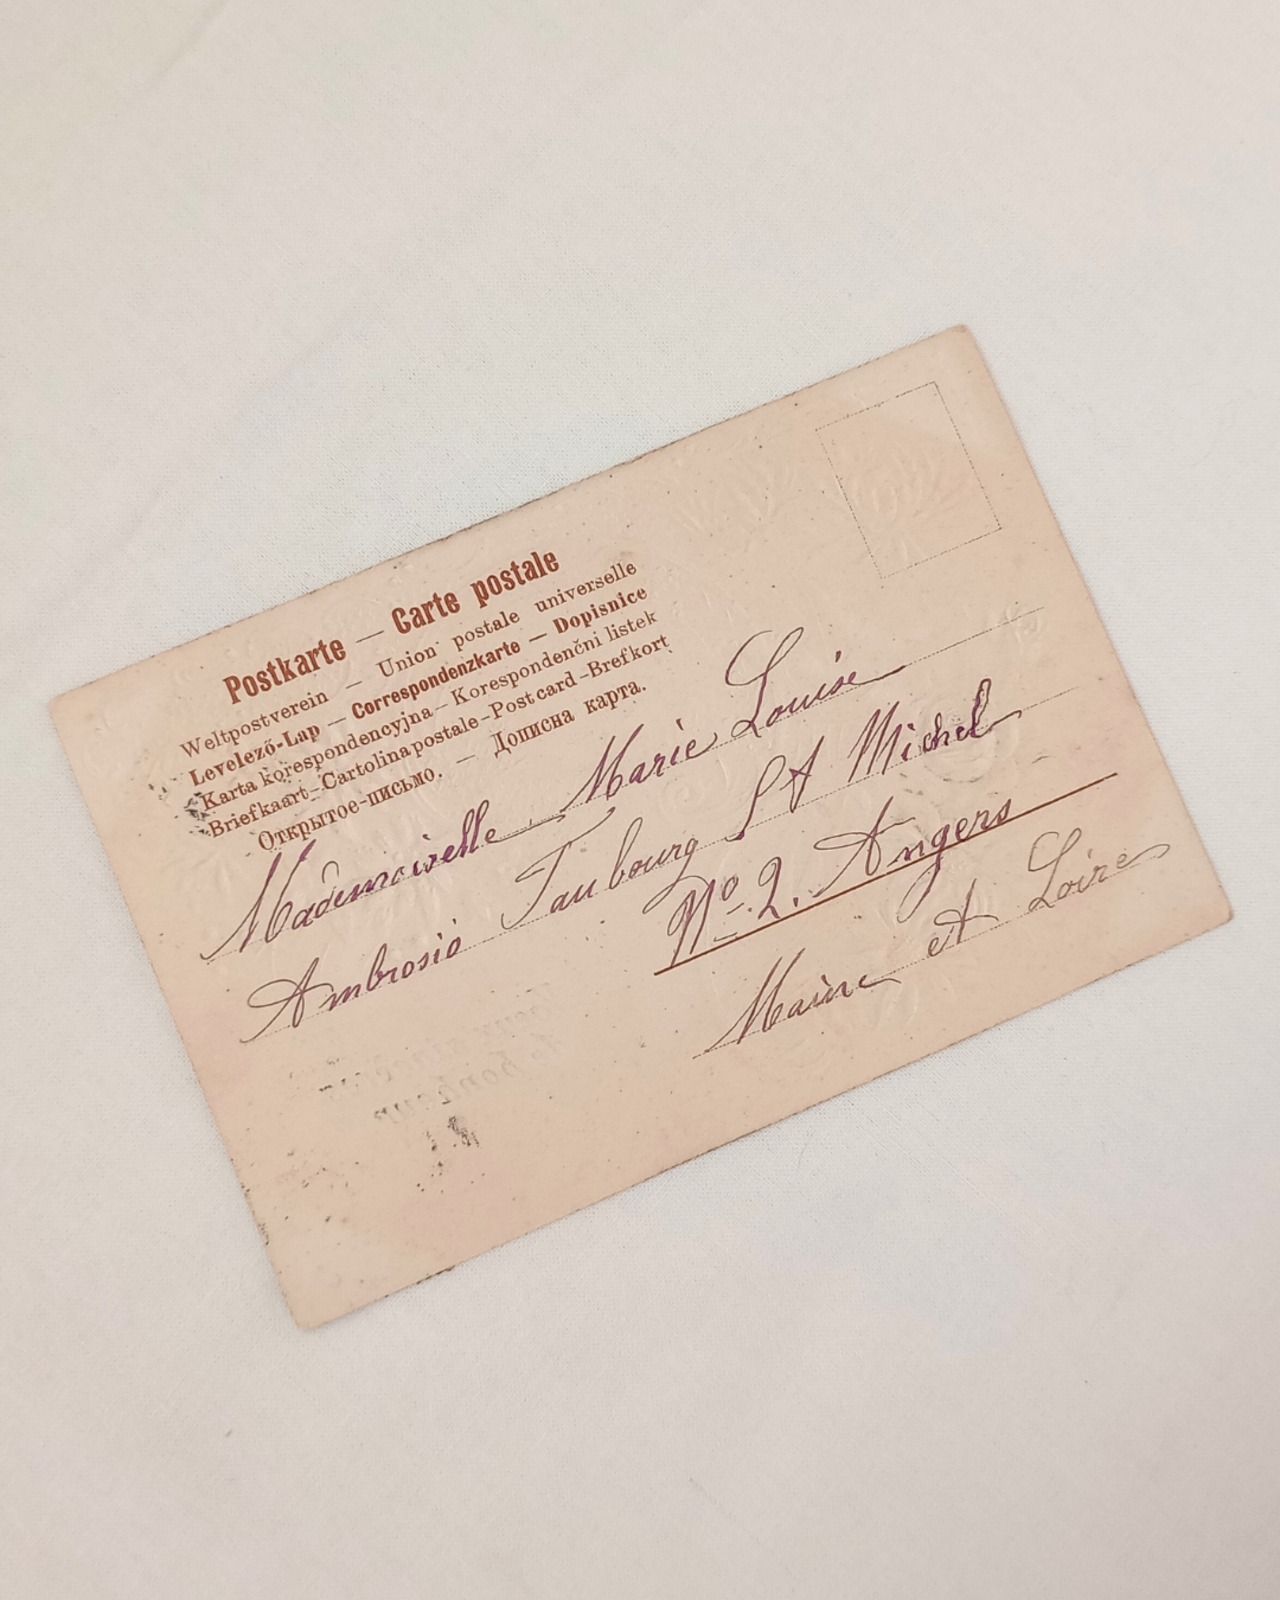 Postkarte — Carte postale
Weltpostverein — Union postale universelle
Levelező-Lap — Correspondenzkarte — Dopisnice
Karta korespondencyjna — Korespondenčni listek
Briefkaart-Cartolina postale-Post card-Brefkort
Открытое-письмо. — Дописна карта.
Mademoiselle Marie Louise
Ambrosio Faubourg St Michel
No 2. Angers
Maine et Loire